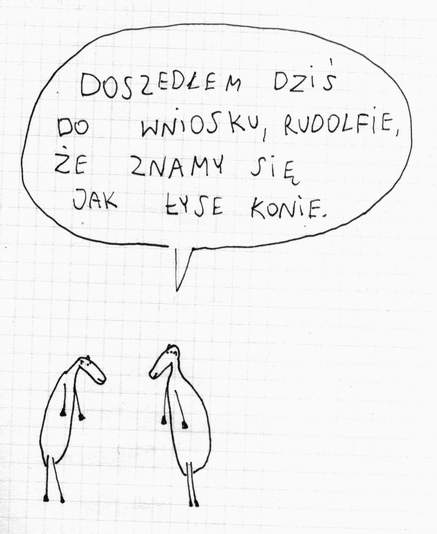 DOSZEDŁEM DZIŚ
DO WNIOSKU, RUDOLFIE,
ŻE ZNAMY SIĘ
JAK ŁYSE KONIE.